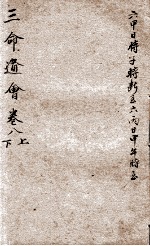 六甲日時子時斷至六丙日甲午時至
三命通會卷八上
下